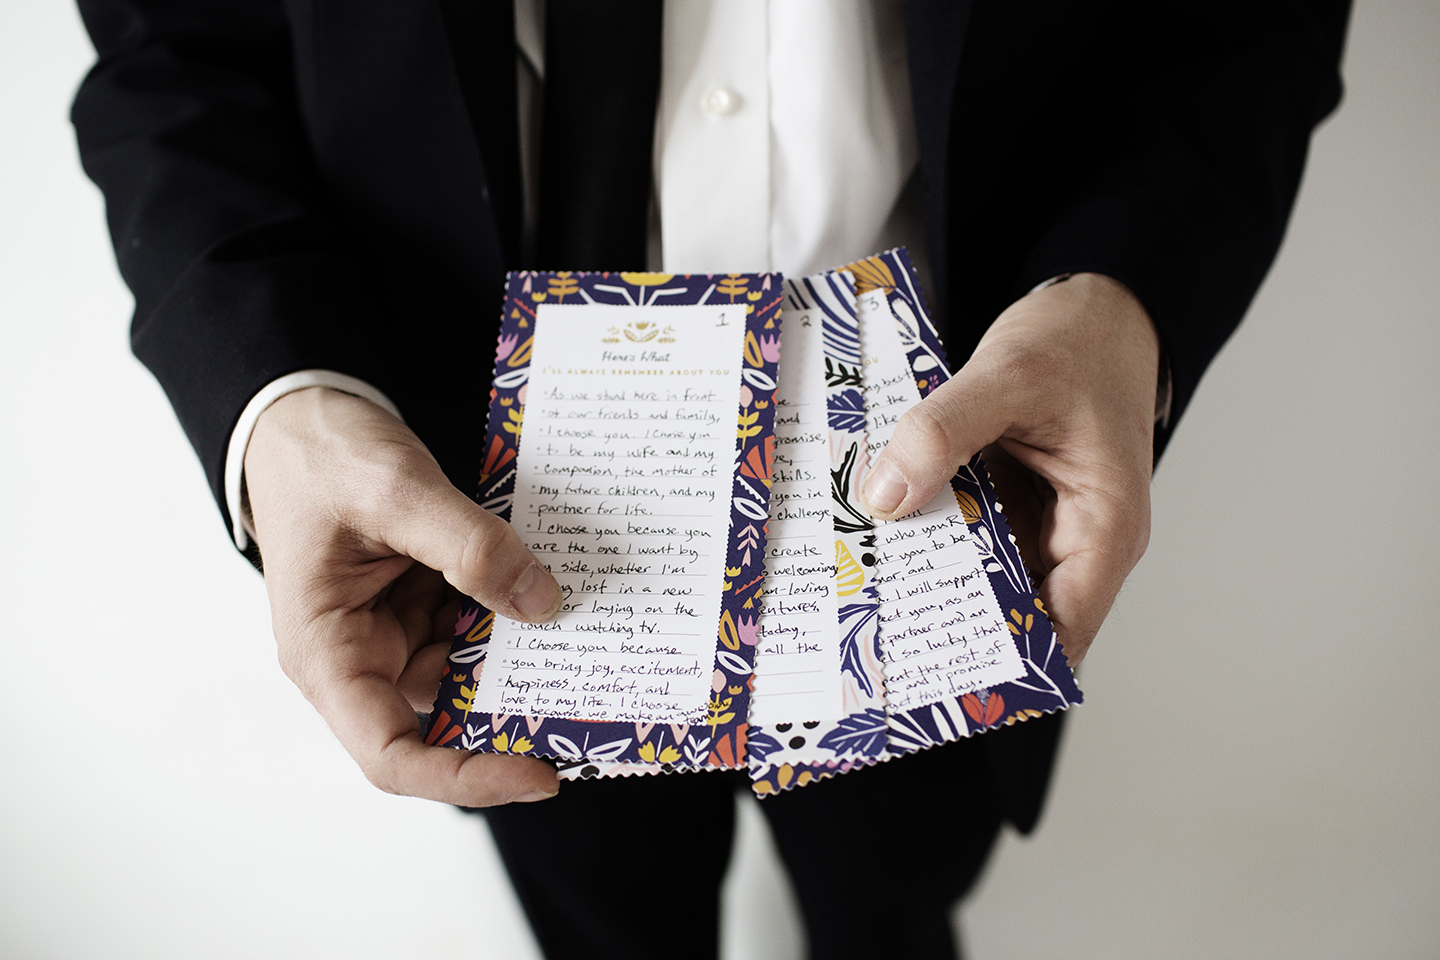 1
Here's What
I'LL ALWAYS REMEMBER ABOUT YOU
As we stand here in front
of our friends and family,
I choose you. I chose you
to be my wife and my
companion, the mother of
my future children, and my
partner for life.
I choose you because you
are the one I want by
side, whether I'm
lost in a new
or laying on the
couch watching tv.
I choose you because
you bring joy, excitement,
happiness, comfort, and
love to my life. I choose
you because we make an awesome
team
2
and
skills.
you in
challenge
create
welcoming,
loving
today,
all the
3
YOU
my best
on the
like
you
will
who you R
you to be
and
I will support
you, as an
partner and an
so lucky that
the rest of
and I promise
get this day.